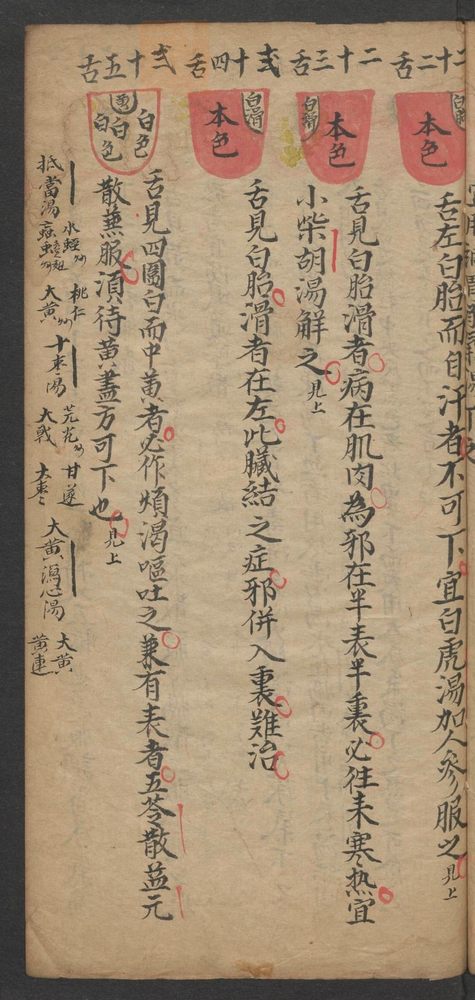 二十二舌
白滑
本色
舌左白胎而自汗者不可下宜白虎湯加人參服之見上
二十三舌
白滑
本色
舌見白胎滑者病在肌肉為邪在半表半裏必往来寒热宜
小柴胡湯解之見上
弍十四舌
白滑
本色
舌見白胎滑者在左此臟結之症邪併入裏難治
弍十五舌
白色
黄
白
白色
舌見四圍白而中黄者必作煩渴嘔吐之兼有表者五苓散益元
散兼服湏待黄盖方可下也見上
抵當湯 水蛭 虻虫 桃仁 大黄
十枣湯 芫花 甘遂 大戟 大枣
大黄瀉心湯 大黄 黄連